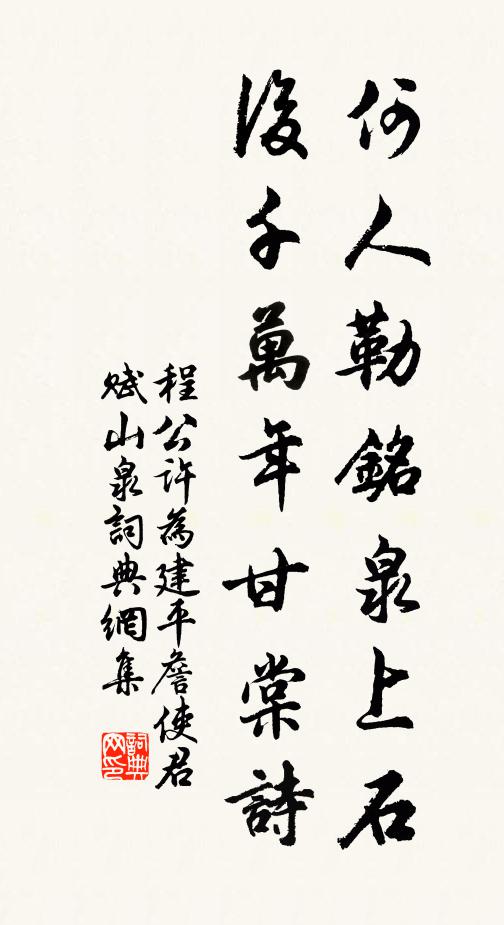 何人勒銘泉上石
後千萬年甘棠詩
程公許為建平詹使君
賦山泉詞典網集
詞典网印